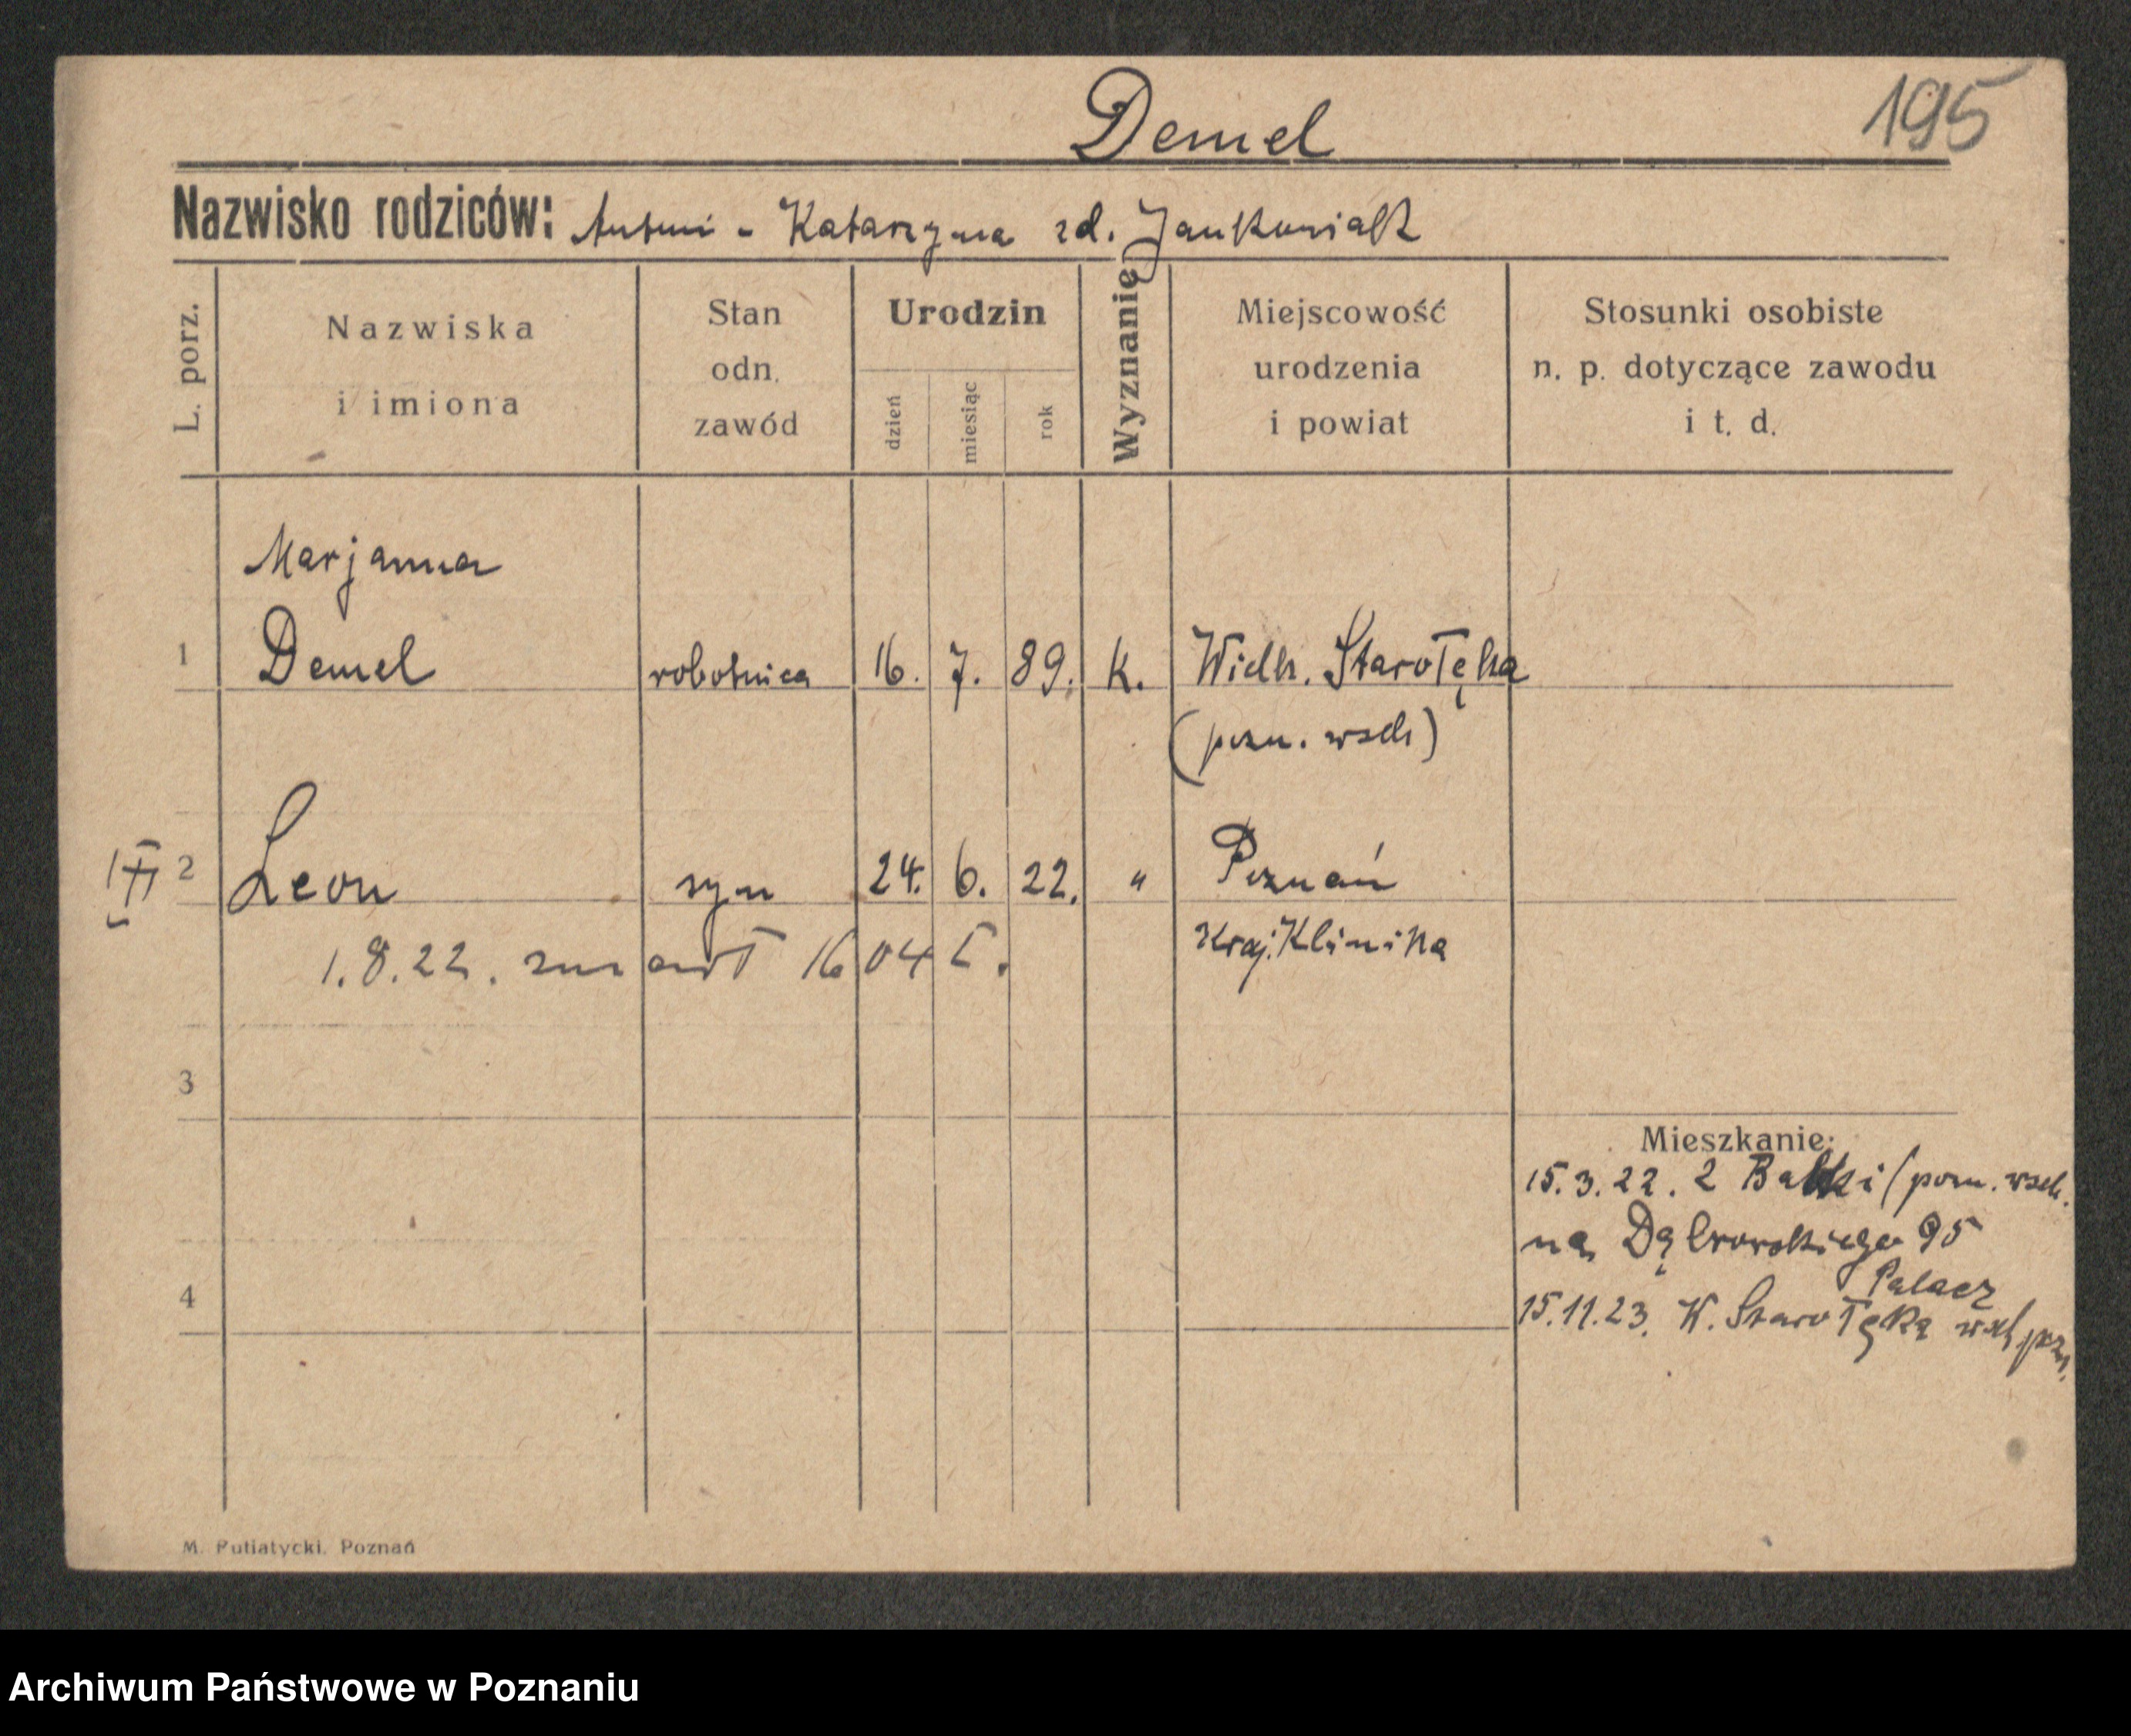 Demel
195
Nazwisko rodziców: Antoni - Katarzyna zd. Jankowiak
L. porz.
Nazwiska
i imiona
Stan
odn.
zawód
Urodzin
dzień
miesiąc
rok
Wyznanię
Miejscowość
urodzenia
i powiat
Stosunki osobiste
n. p. dotyczące zawodu
i t. d.
Marjanna
1 Demel robotnica 16. 7. 89. k. Wielk. Starołęka
(pozn. wsch)
2 Leon syn 24. 6. 22. " Poznań
Kraj. Klinika
1.8.22. zmarł 1604
3
Mieszkanie:
15.3.22. z (pozn. wsch.
na Dąbrowskiego 95
Palacz
4
15.11.23. W. Starołęka wsch pozn.
M. Putiatycki. Poznań
Archiwum Państwowe w Poznaniu